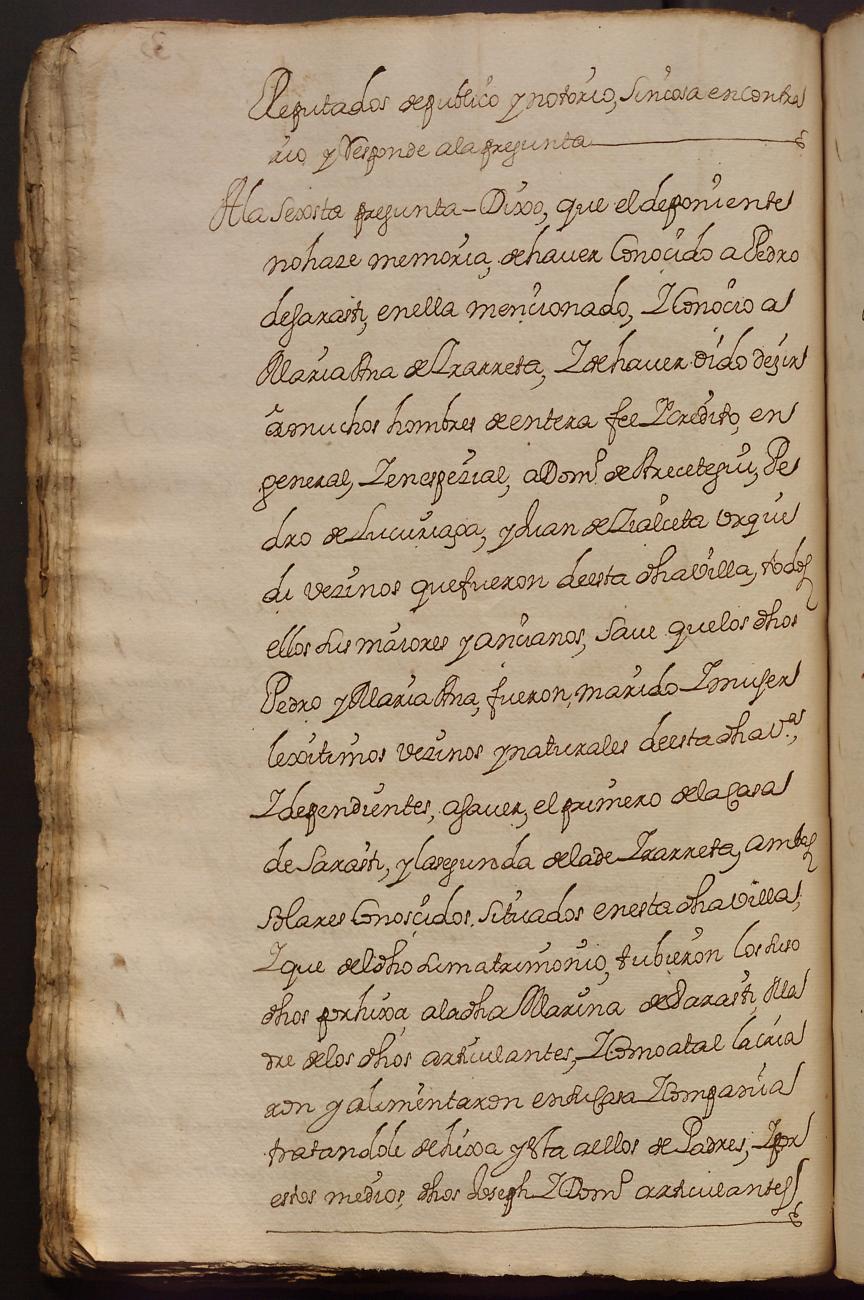 Reputados de publico y notorio, sin cosa en contra
rio, y Responde a la pregunta
A la sexsta pregunta - Dixo, que el deponiente
no haze memoria, de haver Conocido a Pedro
de Sarasti, en ella mencionado, Y Conocio a
Maria Ana de Yrarreta, Y de haver oido dezir
a muchos hombres de entera fee Y credito, en
general, Y en espezial, a Domº de Arecetegui, Pe
dro de Lucuriaga, y Juan de Cialceta urqui
di vezinos que fueron de esta dha villa, todos
ellos sus maiores y ancianos, save que los dhos
Pedro y Maria Ana, fueron, marido Y muger
lexitimos vezinos y naturales de esta dha vª,
Y dependientes, a saver, el primero de la Casa
de Sarasti, y la segunda de la de Yrarreta, ambas
solares Conoscidos, Situados en esta dha villa,
Y que del dho su matrimonio, tubieron los suso
dhos por hixa a la dha Marina de Sarasti, Ma
dre de los dhos articulantes, Y Como a tal la cria
ron y alimentaron en su Casa Y Compania
tratandole de hixa y esta a ellos de Padres, Y por
estos medios, dhos Joseph Y Domº articulantes